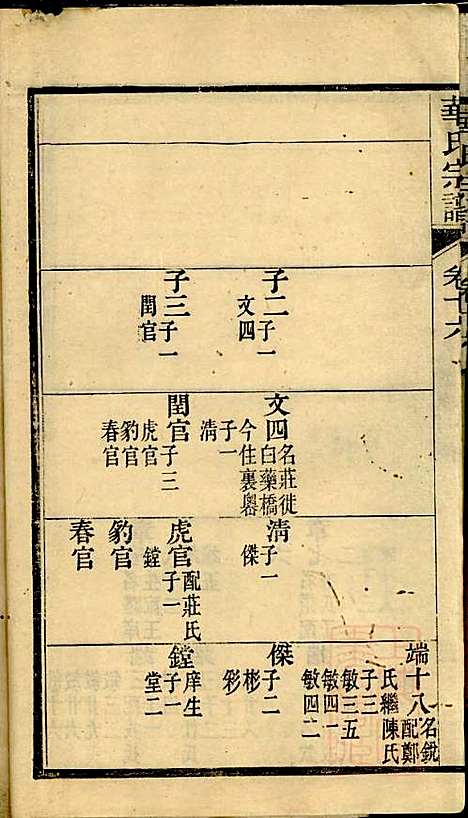 華氏宗譜
卷十六
子二子一
文四
子三子一
閏官
文四名莊徙
白藥橋
今住裏嶴
子一
清
閏官子三
虎官
豹官
春官
清子一
傑
虎官配莊氏
子一
鏜
豹官
春官
端十八名銳
配鄭
氏繼陳氏
子三
敏三五
敏四一
敏四二
傑子二
彬
彩
鏜庠生
子一
堂二